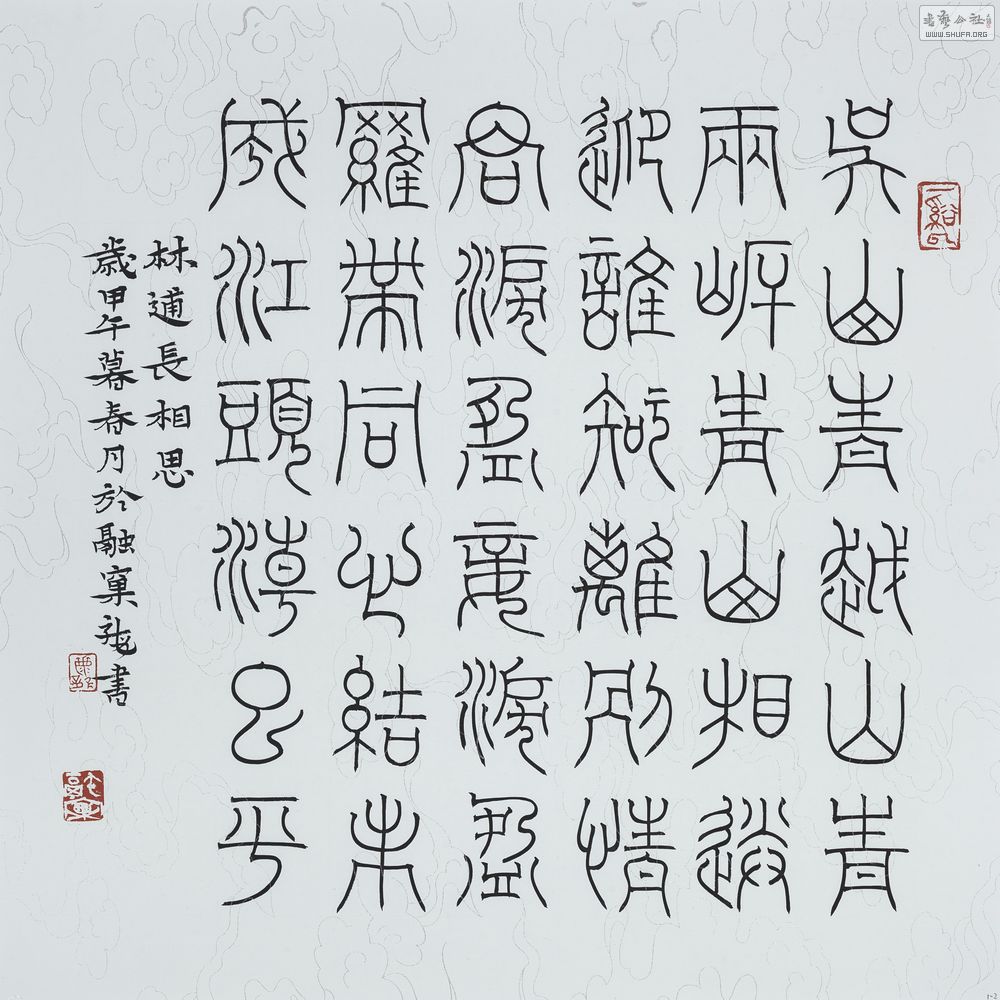 吳山青越山青
兩岸青山相送
迎誰知離別情
君淚盈妾淚盈
羅帶同心結未
成江頭潮已平
林逋長相思
歲甲午暮春月於融書
書藝公社
WWW.SHUFA.ORG